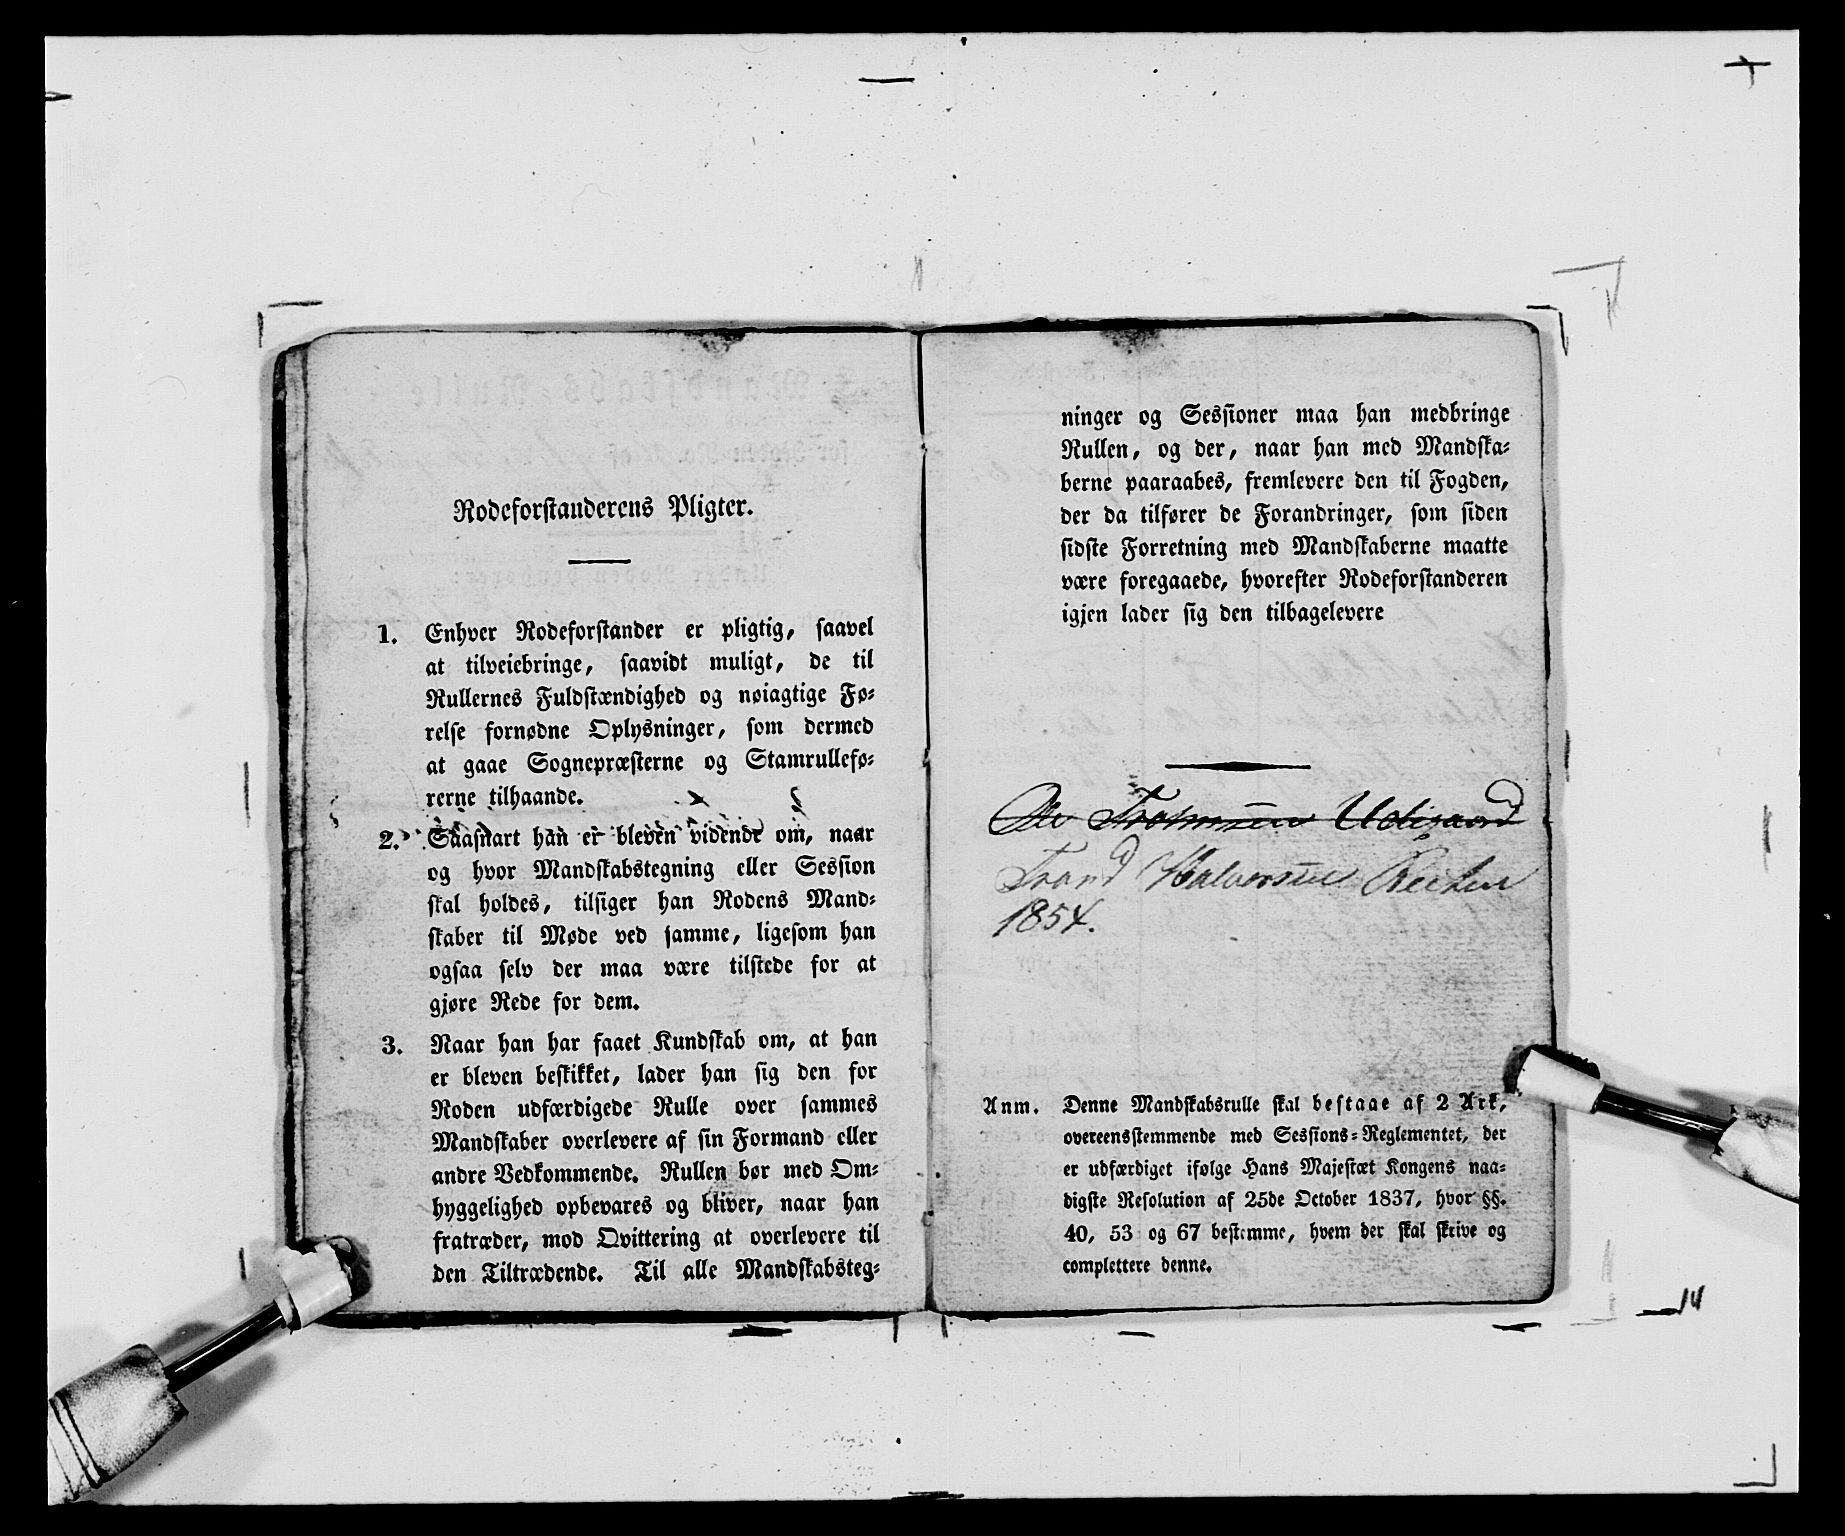 Rodeforstanderens Pligter.
1. Enhver Rodeforstander er pligtig, saavel
at tilveiebringe, saavidt muligt, de til
Rullernes Fuldstændighed og nøiagtige Fø-
relse fornødne Oplysninger, som dermed
at gaae Sognepræsterne og Stamrullefø-
rerne tilhaande.
2. Saasnart han er bleven vidende om, naar
og hvor Mandskabstegning eller Session
skal holdes, tilsiger han Rodens Mand-
skaber til Møde ved samme, ligesom han
ogsaa selv der maa være tilstede for at
gjøre Rede for dem.
3. Naar han har faaet Kundskab om, at han
er bleven beskikket, lader han sig den for
Roden udfærdigede Rulle over sammes
Mandskaber overlevere af sin Formand eller
andre Vedkommende. Rullen bør med Om-
hyggelighed opbevares og bliver, naar han
fratræder, mod Qvittering at overlevere til
den Tiltrædende. Til alle Mandskabsteg-
ninger og Sessioner maa han medbringe
Rullen, og der, naar han med Mandska-
berne paaraabes, fremlevere den til Fogden,
der da tilfører de Forandringer, som siden
sidste Forretning med Mandskaberne maatte
være foregaaede, hvorefter Rodeforstanderen
igjen lader sig den tilbagelevere
Ole
Trond Halvorsen
1854.
Anm. Denne Mandskabsrulle skal bestaae af 2 Ark,
overeensstemmende med Sessions-Reglementet, der
er udfærdiget ifølge Hans Majestæt Kongens naa-
digste Resolution af 25de October 1837, hvor §§.
40, 53 og 67 bestemme, hvem der skal skrive og
complettere denne.
14